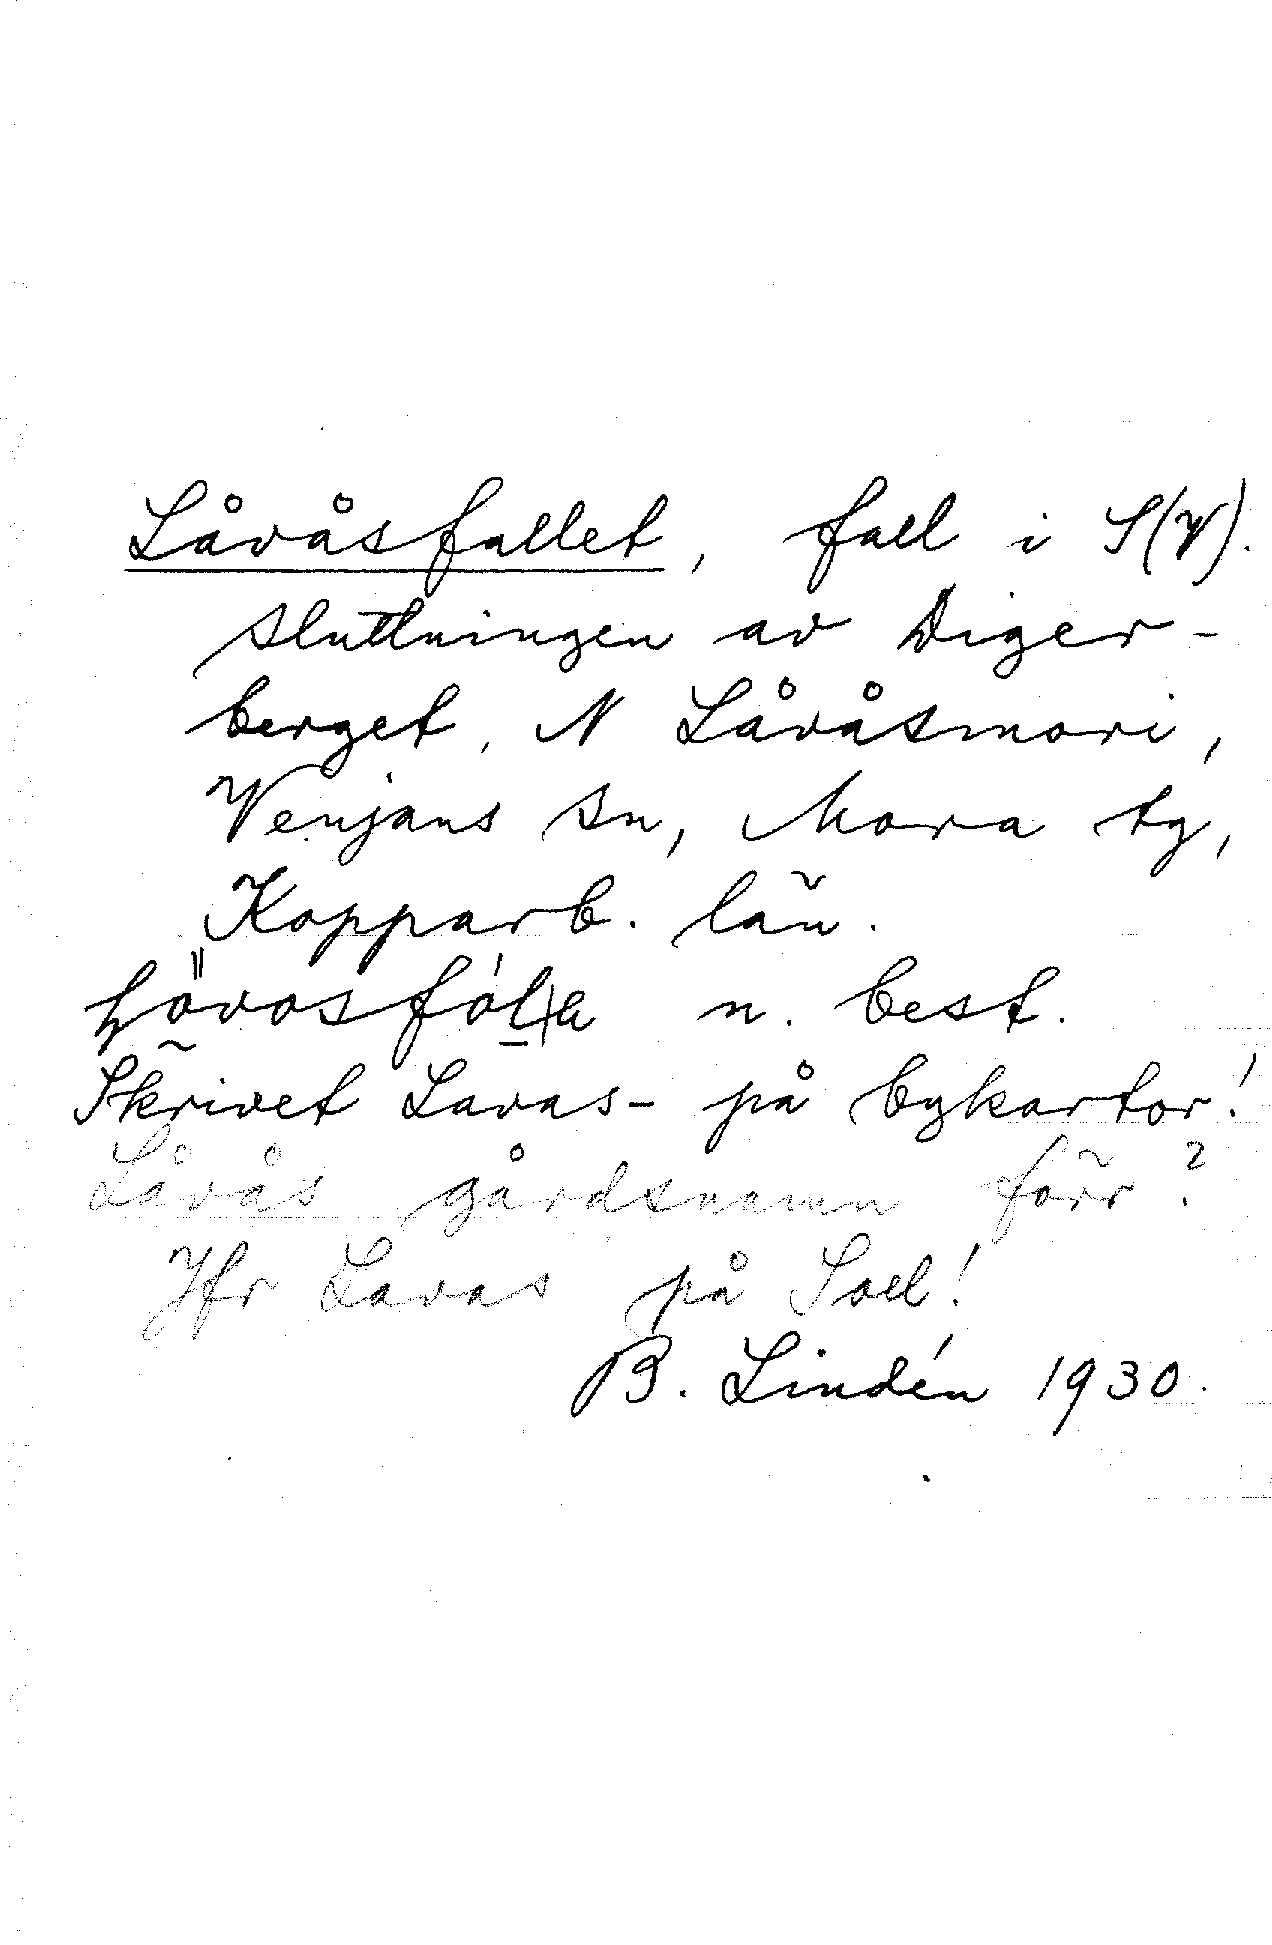 Låvåsfallet, fall i S(V).
sluttningen av Diger-
berget, N Låvåsmori,
Venjans sn, Mora tg,
Kopparb. län.
n. best.
Skrivet Lavas- på bykartor!
Låvås gårdsnamn förr?
Jfr Lavas på Soll!
B. Lindén 1930.